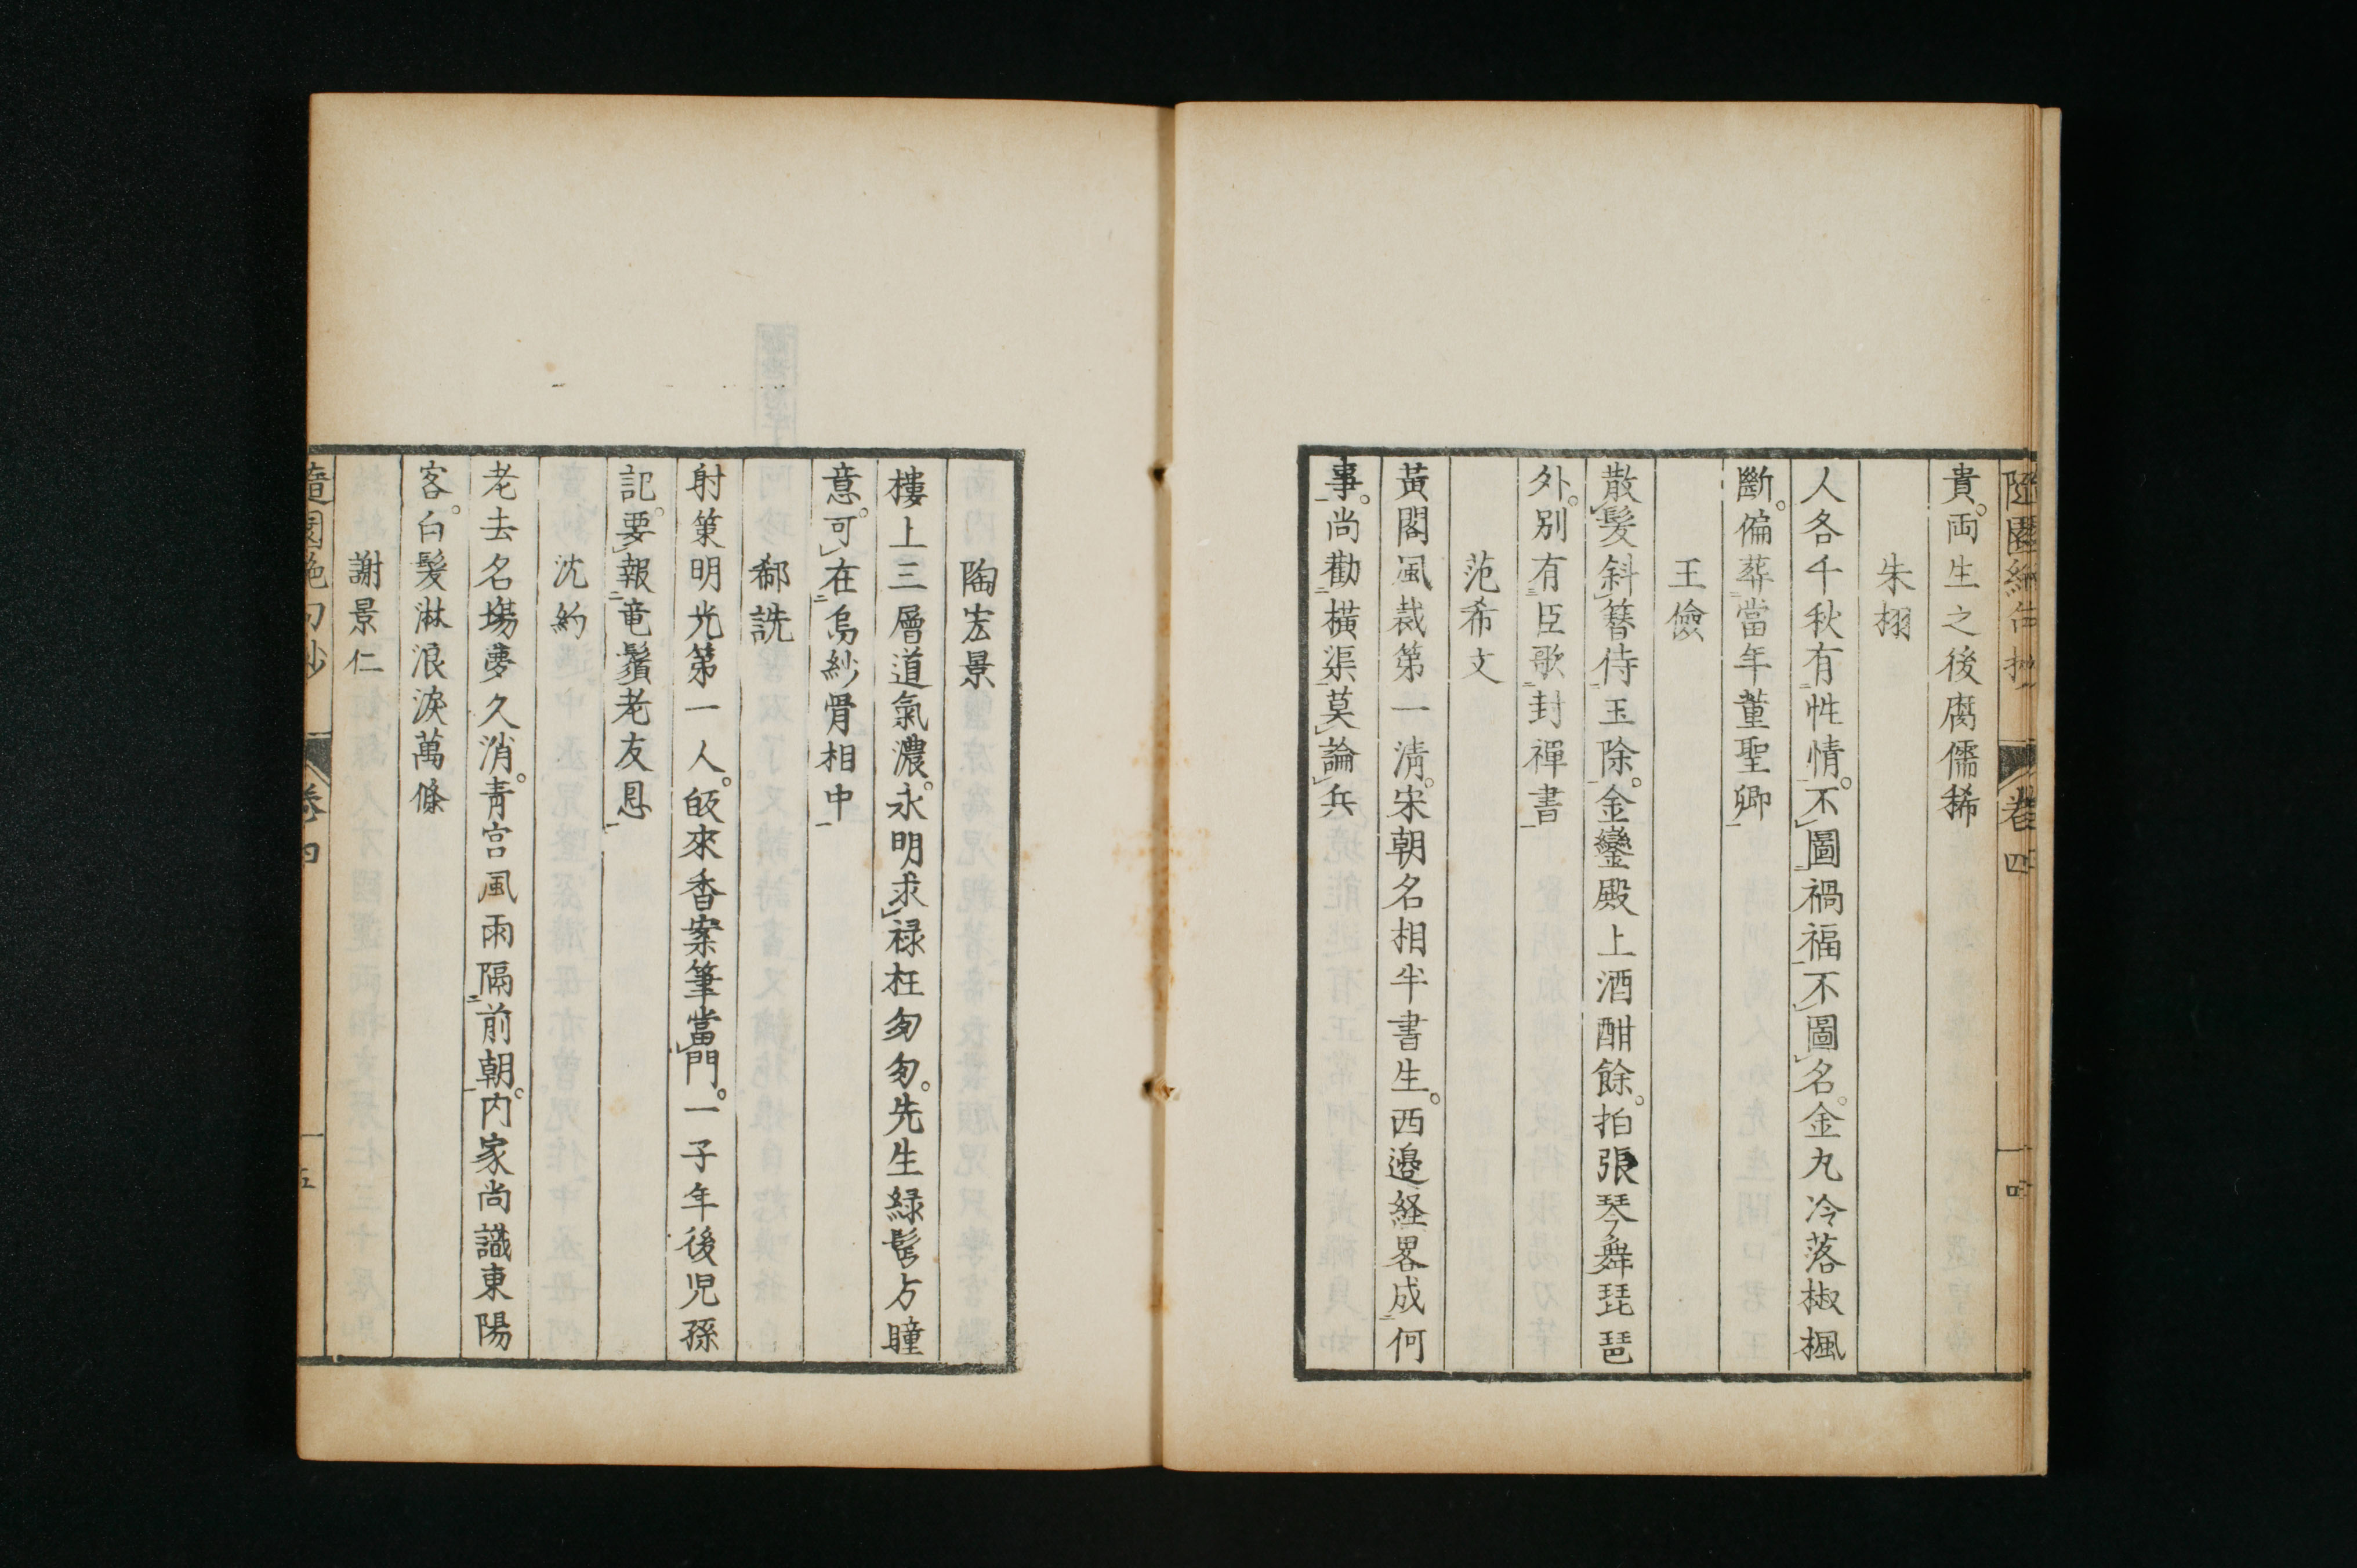 隨園絕句抄 卷四 四
貴。両生之後腐儒稀
朱栩
人各千秋有性情。不圖禍福不圖名。金丸冷落椒楓
斷。偏葬當年董聖卿
王儉
散髮斜簪侍玉除。金鑾殿上酒酣餘。拍張琴舞琵琶
外。別有臣歌封禪書
范希文
黃閣風裁第一清。宋朝名相半書生。西邊経畧成何
事。尚勸橫渠莫論兵
陶宏景
樓上三層道氣濃。永明求禄枉匆匆。先生緑髩方瞳
意。可在烏紗骨相中
郗詵
射策明光第一人。皈來香案筆當門。一子年後児孫
記。要報竜鬚老友恩
沈約
老去名場夢久消。青宮風雨隔前朝。内家尚識東陽
客。白髮淋浪淚萬條
謝景仁
隨園絕句抄 卷四 五